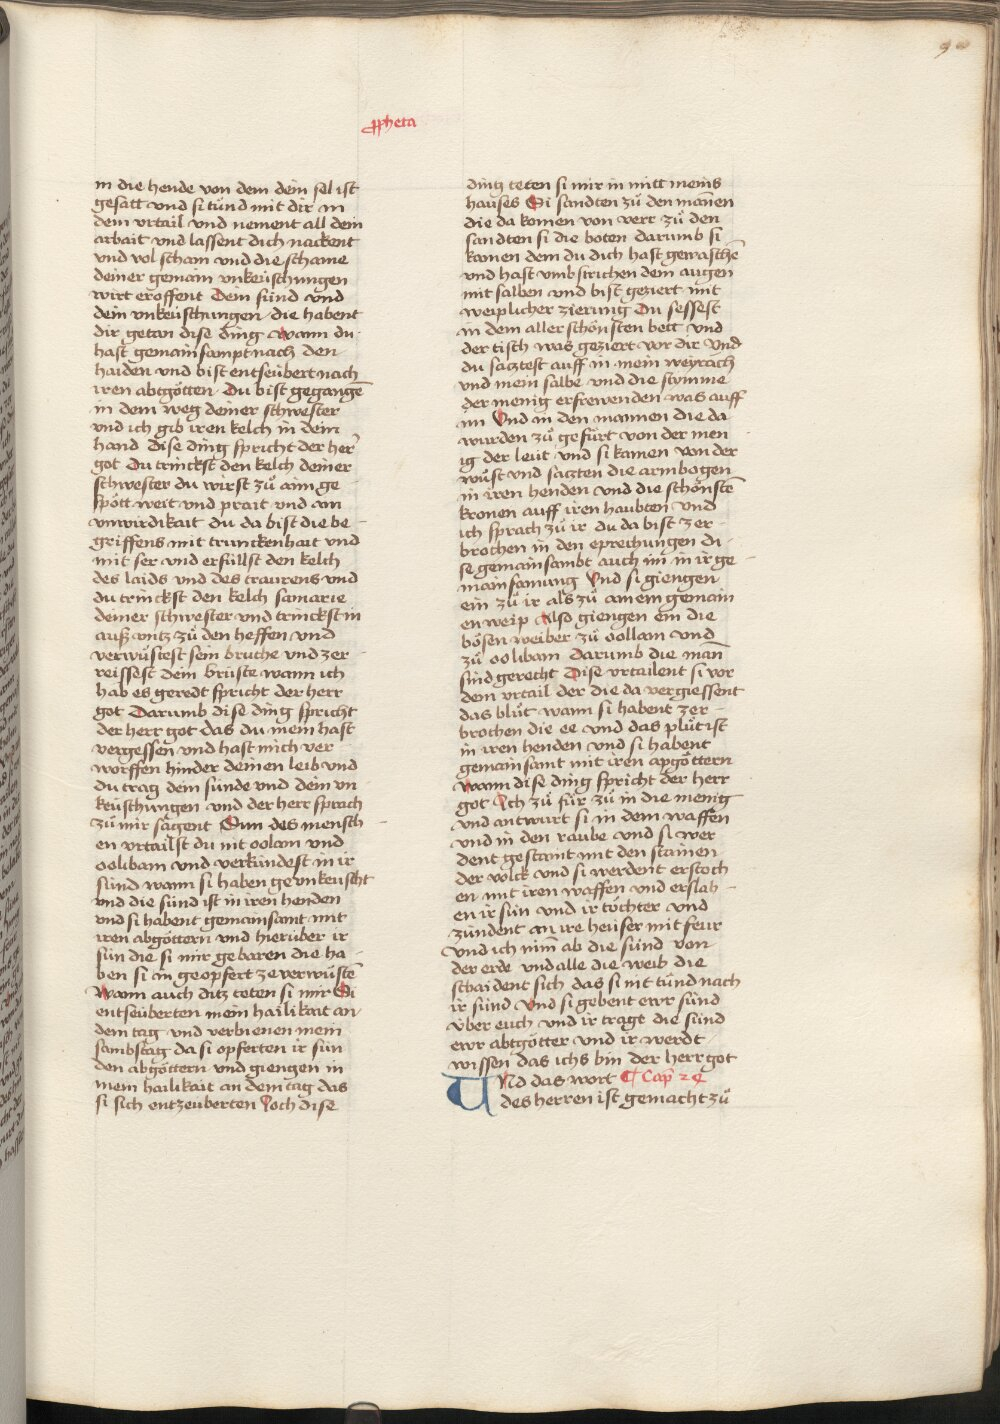 90
ꝓpheta
in die hende von dem dein sel ist
gesatt vnd si tůnd mit dir in
dem vrtail vnd nement all dein
arbait vnd lassent dich nackent
vnd vol scham vnd die schame
deiner gemain vnkeuschungen
wirt eroffent Dein sünd vnd
dein vnkeuschungen die habent
dir getan dise ding wann du
hast gemainsampt nach den
haiden vnd bist entseubert nach
iren abtgötten Du bist gegangē
in dem weg deiner schwester
vnd ich gib iren kelch in dein
hand Dise ding spricht der her
got Du trinckst den kelch deiner
schwester du wirst zů aim ge
spött weit vnd prait vnd am
vnwirdikait du da bist die be
griffens mit trunckenhait vnd
mit ser vnd erfüllst den kelch
des laids vnd des traurens vnd
du trinckst den kelch samarie
deiner schwester vnd trinckst in
auß vntz zů den heffen vnd
verwüstest sein bruche vnd zer
reissest dein brüste wann ich
hab es geredt spricht der herr
got Darumb dise ding spricht
der herr got das du mein hast
vergessen vnd hast mich ver
worffen hinder deinen leib vnd
du trag dein sünde vnd dein vn
keuschungen vnd der herr sprach
zů mir sagent Sun des mensch
en vrtailst du nit oolam vnd
oolibam vnd verkündest in ir
sünd wann si haben gevnkeuscht
vnd die sünd ist in iren henden
vnd si habent gemainsamt mit
iren abgöttern vnd hierüber ir
sün die si mir gebaren die ha
ben si in geopfert ze verwüstē
Wann auch ditz teten si mir Si
entseuberten mein hailikait an
dem tag vnd verbienen mein
sambstag da si opferten ir sün
den abgöttern vnd giengen in
mein hailikait an dem tag das
si sich entzeuberten Joch dise
ding teten si mir in mitt meins
hauses Si sandten zů den mānen
die da komen von verr zů den
sandten si die boten darumb si
kamen dem du dich hast gewaschē
vnd hast vmbstrichen dein augen
mit salben vnd bist geziert mit
weiplicher zierung Du sessest
in dem aller schönsten bett vnd
der tisch was geziert vor dir vnd
du satztest auff in mein weyrach
vnd mein salbe vnd die stymme
der menig erfrewenden was auff
im Vnd in den mannen die da
wurden zů gefürt von der men
ig der leut vnd si kamen von der
wůst vnd satzten die armbogen
in iren henden vnd die schönstē
kronen auff iren haubten vnd
ich sprach zů ir du da bist zer
brochen in den eprechungen di
se gemainsambt auch im in ir ge
mainsamung Vnd si giengen
ein zů ir als zů ainem gemain
en weip Also giengen ein die
bösen weiber zů oollam vnd
zů oolibam darumb die mān
sind gerecht Dise vrtailent si vor
dem vrtail der die da vergiessent
das blůt wann si habent zer
brochen die ee vnd das plůt ist
in iren henden vnd si habent
gemainsamt mit iren apgöttern
Wann dise ding spricht der herr
got Ich zů für zů in die menig
vnd antwurt si in dem waffen
vnd in den raube vnd si wer
dent gestaint mit den stainen
der völck vnd si werdent erstoch
en mit iren waffen vnd erslah
en ir sün vnd ir töchter vnd
zündent an ire heuser mit feur
vnd ich nim̄ ab die sünd von
der erde vnd alle die weib die
schaident sich das si nit tůnd nach
ir sünd Vnd si gebent ewr sünd
über euch vnd ir tragt die sünd
ewr abtgötter vnd ir werdt
wissen das ichs bin der herr got
VNd das wort ¶ Cap̄ 24
des herren ist gemacht zů